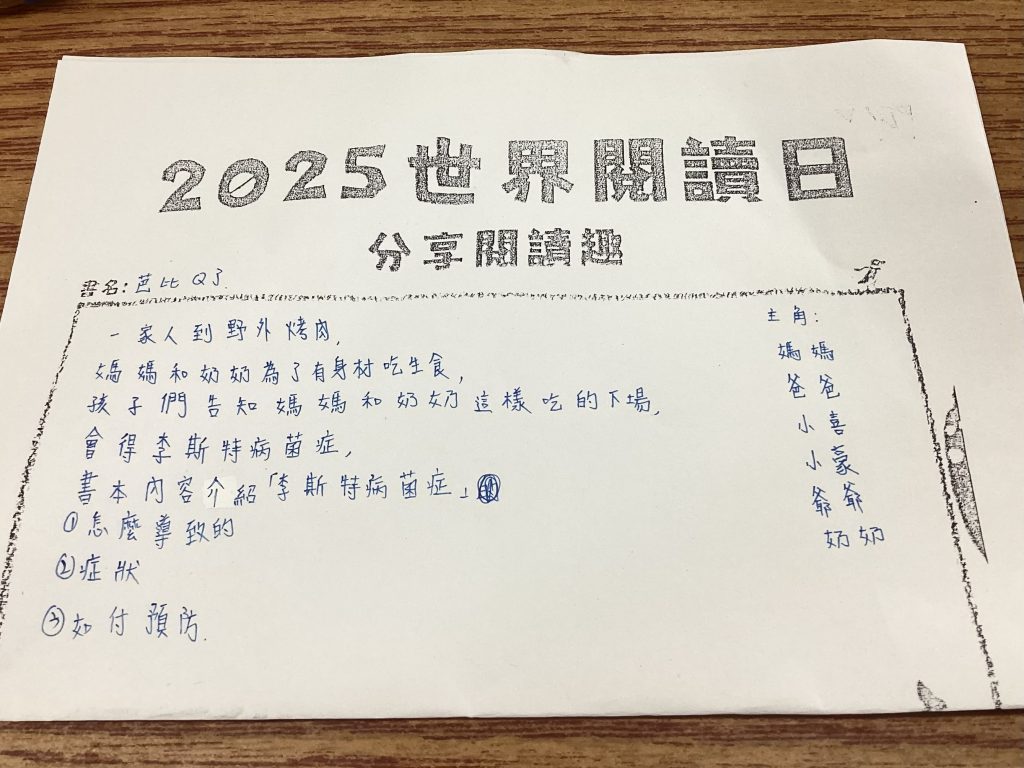 2025世界閱讀日
分享閱讀趣
書名:芭比Q了.
一家人到野外烤肉,
媽媽和奶奶為了有身材吃生食,
孩子們告知媽媽和奶奶這樣吃的下場,
會得李斯特病菌症,
書本內容介紹「李斯特病菌症」
①怎麼導致的
②症狀
③如付預防.
主角:
媽媽
爸爸
小喜
小豪
爺爺
奶奶